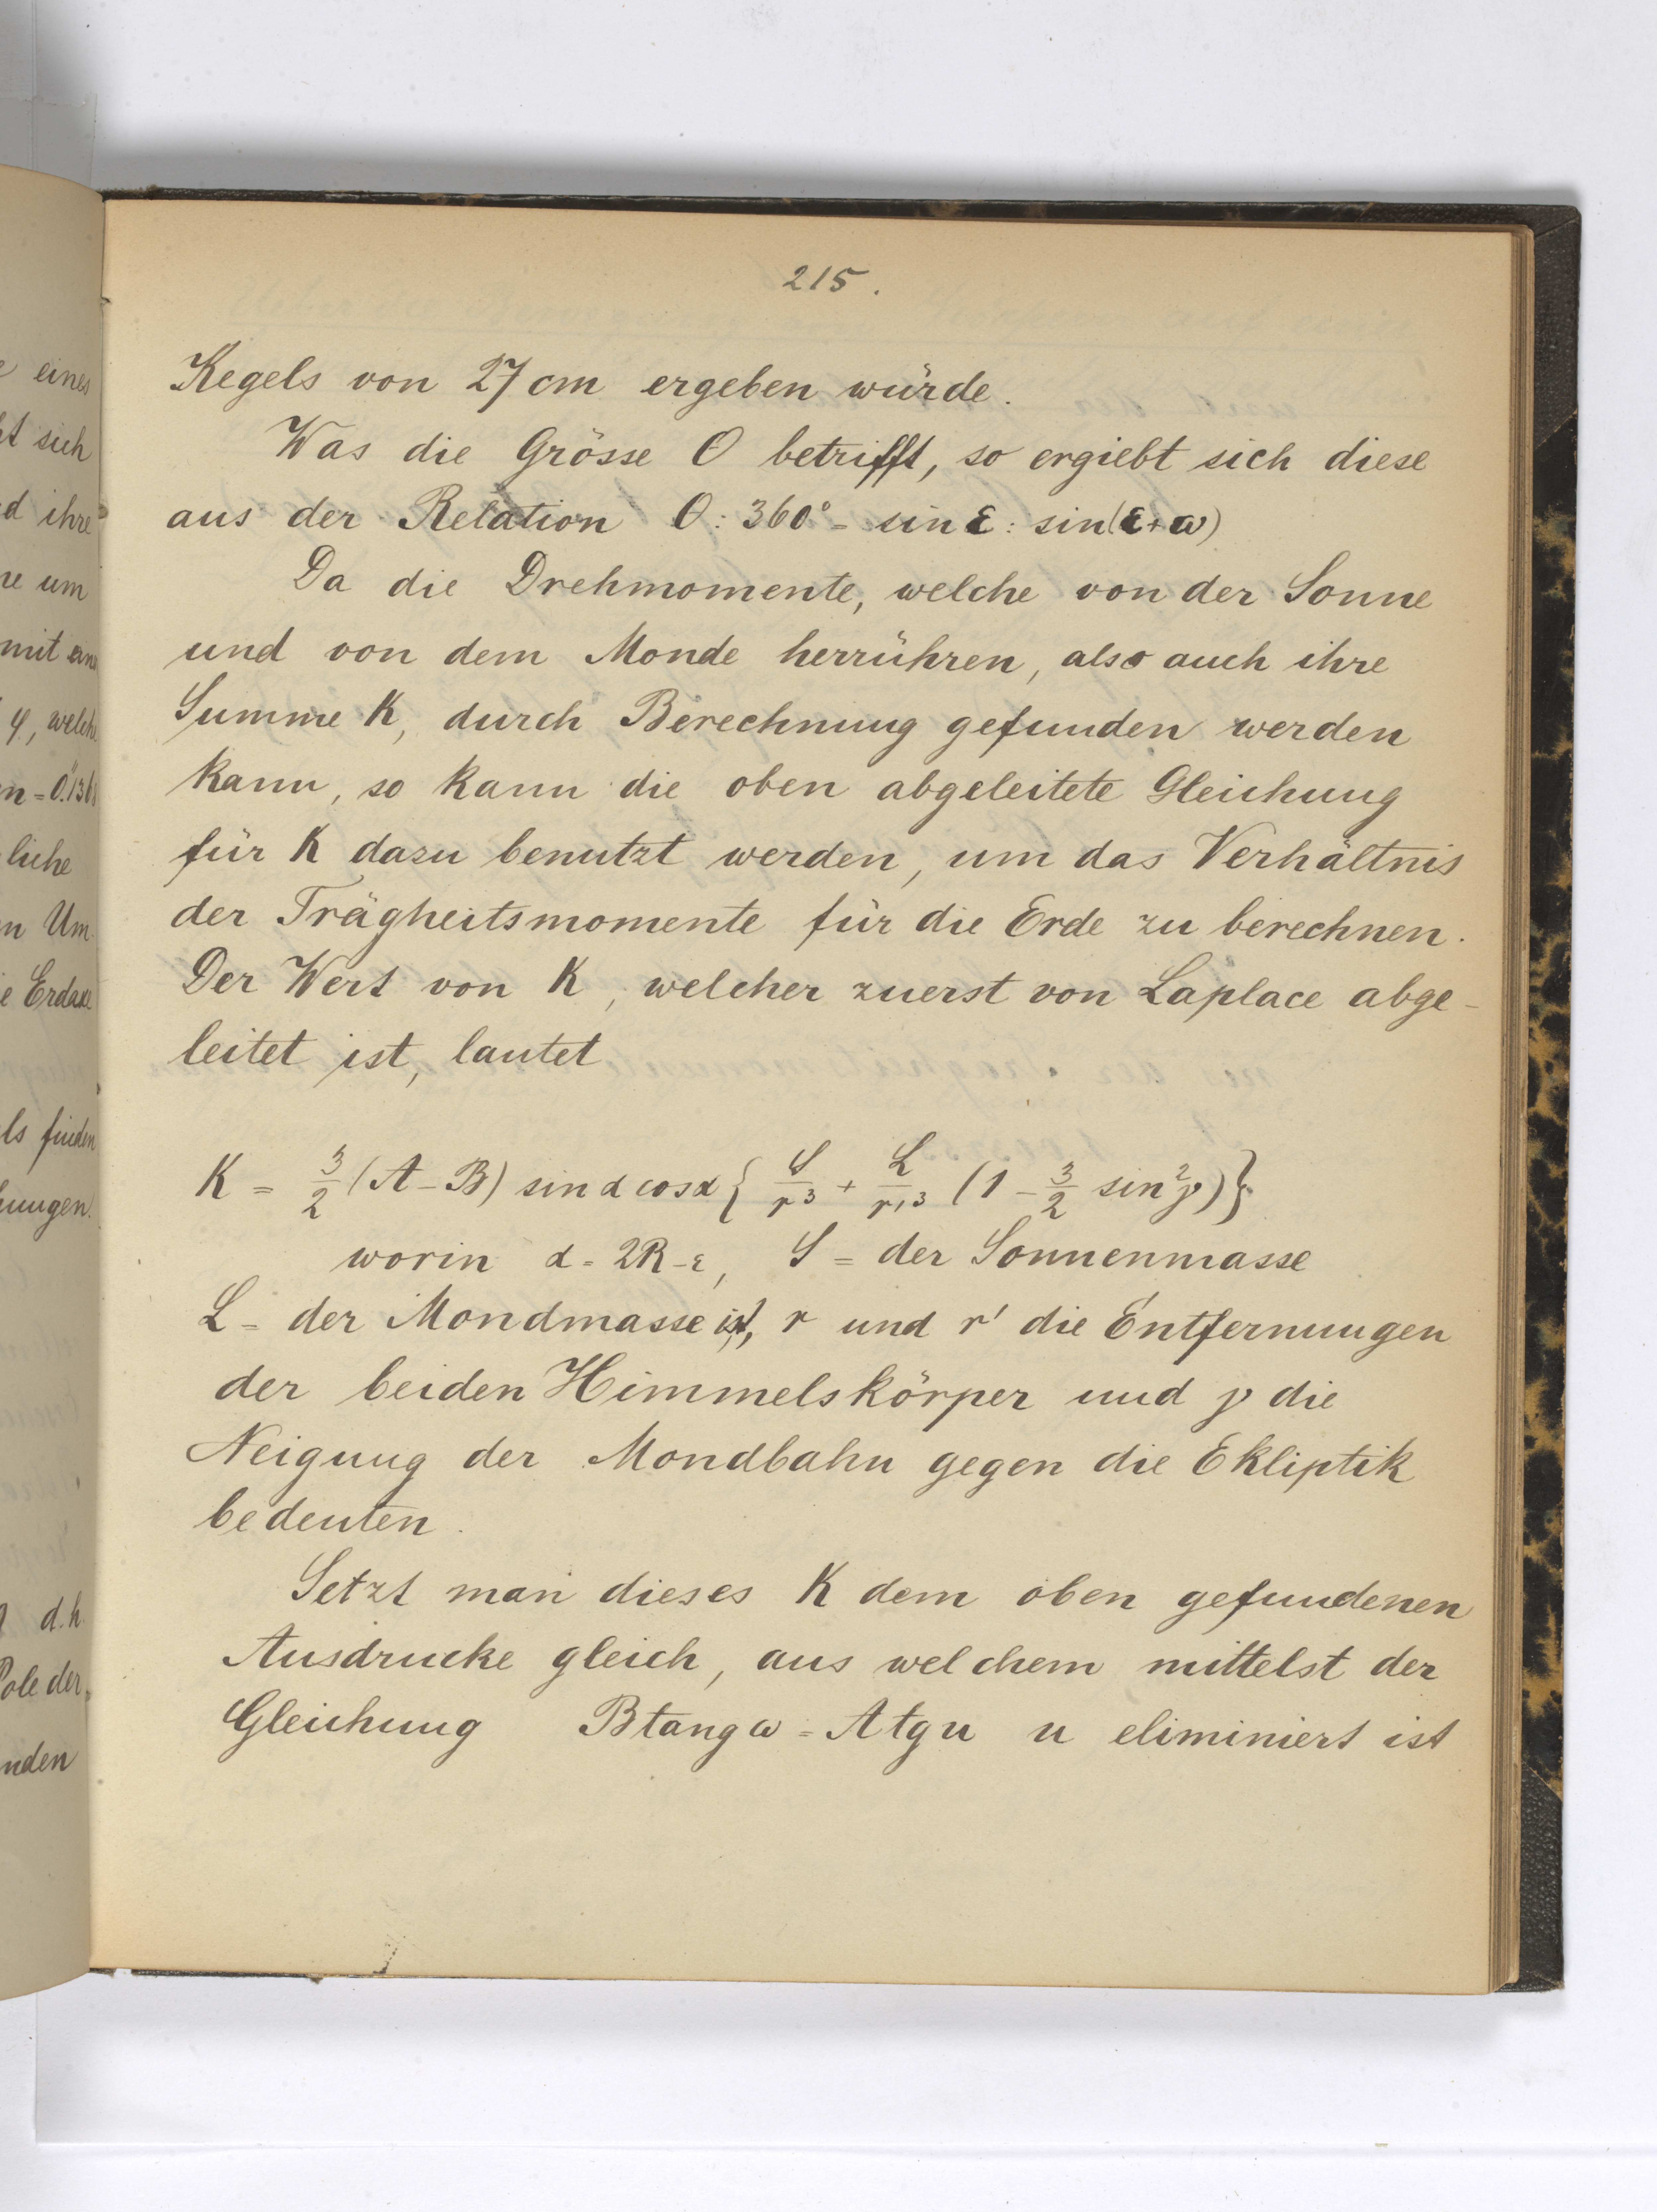 e eines
et sich
d ihre
re um
mit eine
φ, welche
n = 0."136
liche
n Um
e Erdaxe
ls finden
hungen.
d.h.
Pole der
nden
215.
Kegels von 27 cm ergeben würde.
Was die Grösse O betrifft, so ergiebt sich diese
aus der Relation O : 360° = sin ε : sin(ε+ω)
Da die Drehmomente, welche von der Sonne
und von dem Monde herrühren, also auch ihre
Summe K, durch Berechnung gefunden werden
kann, so kann die oben abgeleitete Gleichung
für K dazu benutzt werden, um das Verhältnis
der Trägheitsmomente für die Erde zu berechnen.
Der Wert von K, welcher zuerst von Laplace abge-
leitet ist, lautet
K = 3/2 (A - B) sin α cos α { S/r³ + L/r'³ (1 - 3/2 sin² γ) }
worin α = 2R - ε, S = der Sonnenmasse
L = der Mondmasse ist, r und r' die Entfernungen
der beiden Himmelskörper und γ die
Neigung der Mondbahn gegen die Ekliptik
bedeuten.
Setzt man dieses K dem oben gefundenen
Ausdrucke gleich, aus welchem mittelst der
Gleichung B tang ω = A tg u u eliminiert ist